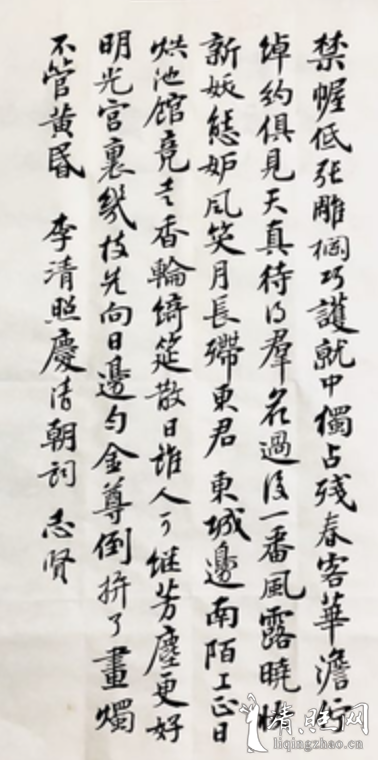 禁幄低张雕欄巧護就中獨占残春容華澹佇
绰约俱見天真待得羣花過后一番風露曉妝
新妖態妒风笑月長殢東君東城邊南陌上正日
烘池馆竞走香輪绮筵散日誰人可继芳塵更好
明光宫裏幾枝先向日邊匀金尊倒拚了畫燭
不管黄昏 李清照慶清朝詞 志贤
清照网
liqingzhao.cn